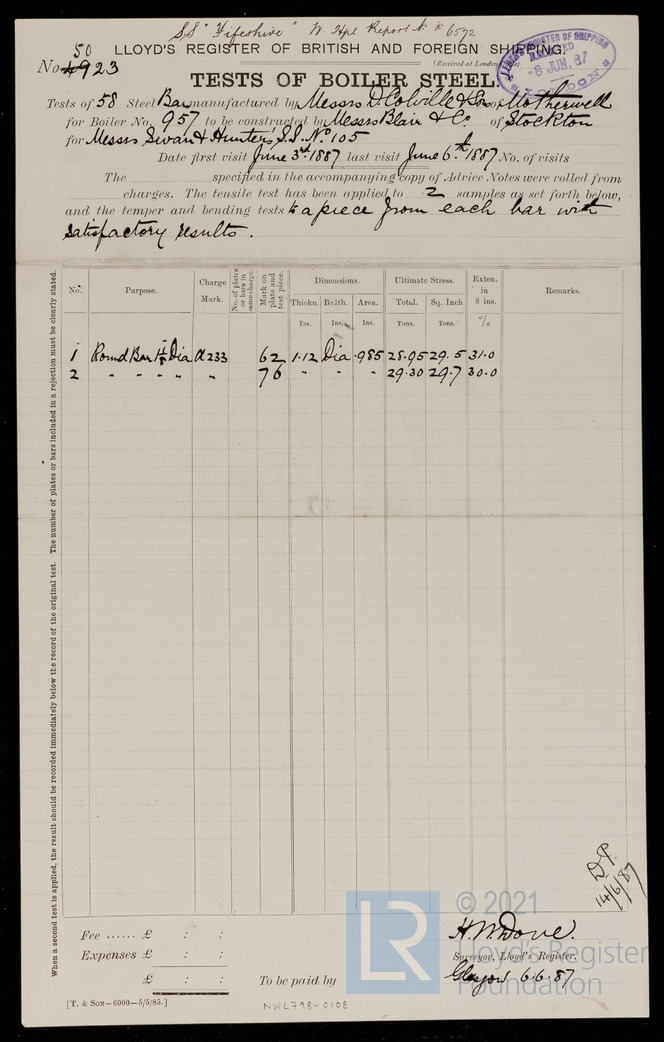 S.S "Fifeshire" W. Hpl Report No * 6592
50
LLOYD'S REGISTER OF BRITISH AND FOREIGN SHIPPING.
No. 4923
(Received at London
LLOYD'S REGISTER OF SHIPPING
RECEIVED
-8 JUN. 87
LONDON
TESTS OF BOILER STEEL.
Tests of 58 Steel Bars manufactured by Messrs D. Colville & Sons of Motherwell
for Boiler No. 957 to be constructed by Messrs Blair & Co. of Stockton
for Messrs Swan & Hunter's S.S. No. 105
Date first visit June 3rd. 1887 last visit June 6th. 1887 No. of visits
The specified in the accompanying copy of Advice Notes were rolled from
charges. The tensile test has been applied to 2 samples as set forth below,
and the temper and bending tests to a piece from each bar with
satisfactory results.
No. Purpose. Charge Mark. No. of plates or bars in same charge. Mark on plate and test piece. Dimensions. Ultimate Stress. Exten. in 8 ins. Remarks.
Thickn. Bdth. Area. Total. Sq. Inch
Ins. Ins. Ins. Tons. Tons. %
1 Round Bar Dia A 233 62 1.12 Dia .985 28.95 29.5 31.0
2 " " " " " 76 " " " 29.30 29.7 30.0
When a second test is applied, the result should be recorded immediately below the record of the original test. The number of plates or bars included in a rejection must be clearly stated.
D.P.
14/6/87
Fee ...... £ : :
Expenses £ : :
£ : :
To be paid by
H. W. Dove.
Surveyor, Lloyd's Register.
Glasgow 6.6.87
[T. & Son—6000—5/5/85.]
NWL798-0108
LR
© 2021
Lloyd's Register
Foundation